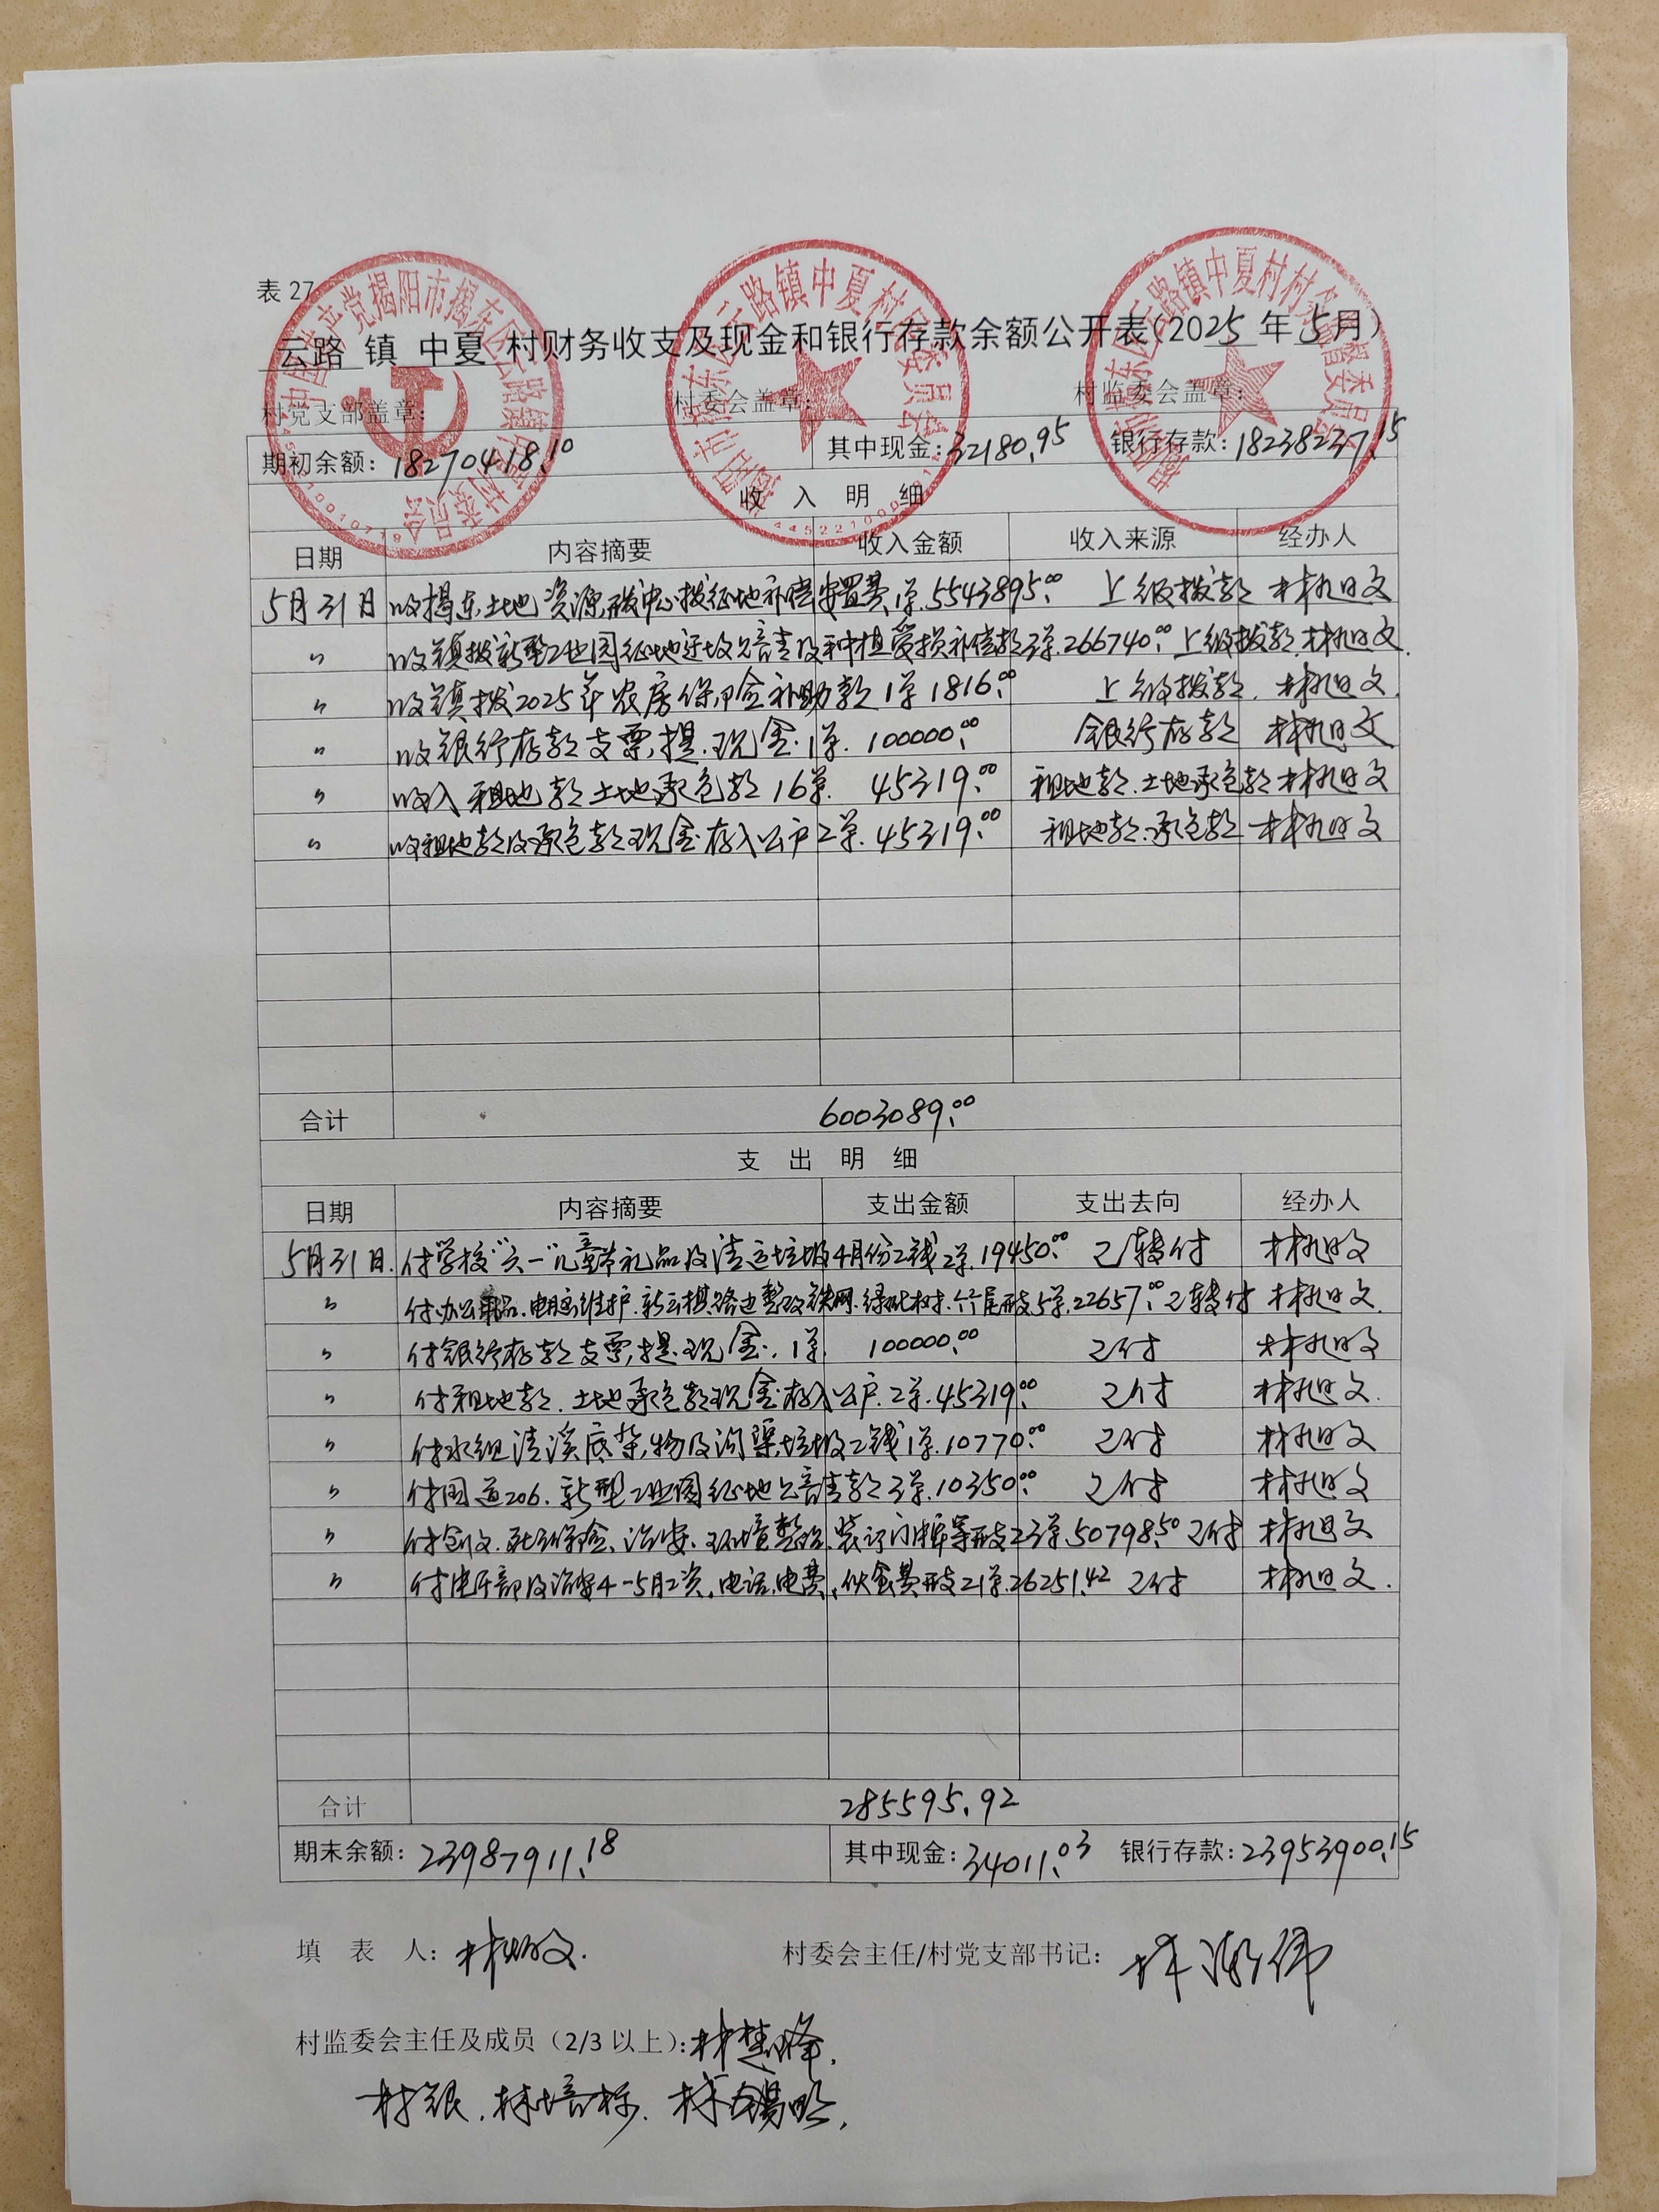 表 27
云路 镇 中夏 村财务收支及现金和银行存款余额公开表(2025 年 5月)
村党支部盖章: 村委会盖章: 村监委会盖章:
期初余额: 18270418.10 其中现金: 32180.95 银行存款: 18238237.15
收 入 明 细
日期 内容摘要 收入金额 收入来源 经办人
5月31日 收揭东土地资源开发中心拨征地补偿安置费1单. 5543895.00 上级拨款 林旭文
〃 收镇拨新型工业园征地迁坟公音青及种植受损补偿款3单. 266740.00 上级拨款. 林旭文.
〃 收镇拨2025年农房保险金补助款1单 1816.00 上级拨款. 林旭文.
〃 收银行存款支票,提现金.1单. 100000.00 银行存款 林旭文
〃 收入租地款土地承包款16单. 45319.00 租地款.土地承包款 林旭文
〃 收租地款及承包款现金存入公户2单. 45319.00 租地款.承包款 林旭文
合计 6003089.00
支 出 明 细
日期 内容摘要 支出金额 支出去向 经办人
5月31日. 付学校"六一"儿童节礼品及清运垃圾4月份工钱2单. 19450.00 已转付 林旭文
〃 付办公用品.电脑维护.路边整改铁网.绿化树.开支5单. 22657.00 已转付 林旭文.
〃 付银行存款支票,提现金.1单 100000.00 已付 林旭文
〃 付租地款.土地承包款现金存入公户.2单. 45319.00 已付 林旭文.
〃 付水组清溪底杂物及沟渠垃圾工钱1单. 10770.00 已付 林旭文
〃 付国道206.新型工业园征地青款3单. 10350.00 已付 林旭文
〃 付创文.保险金.治安.环境整治.装订门牌等开支23单. 50798.50 已付 林旭文
〃 付治安4-5月工资.电话.电费,伙食费开支21单. 26251.42 已付 林旭文.
合计 285595.92
期末余额: 23987911.18 其中现金: 34011.03 银行存款: 23953900.15
填 表 人: 林旭文. 村委会主任/村党支部书记: 林潮伟
村监委会主任及成员(2/3 以上): 林楚峰.
林银.林培标.林锡明.